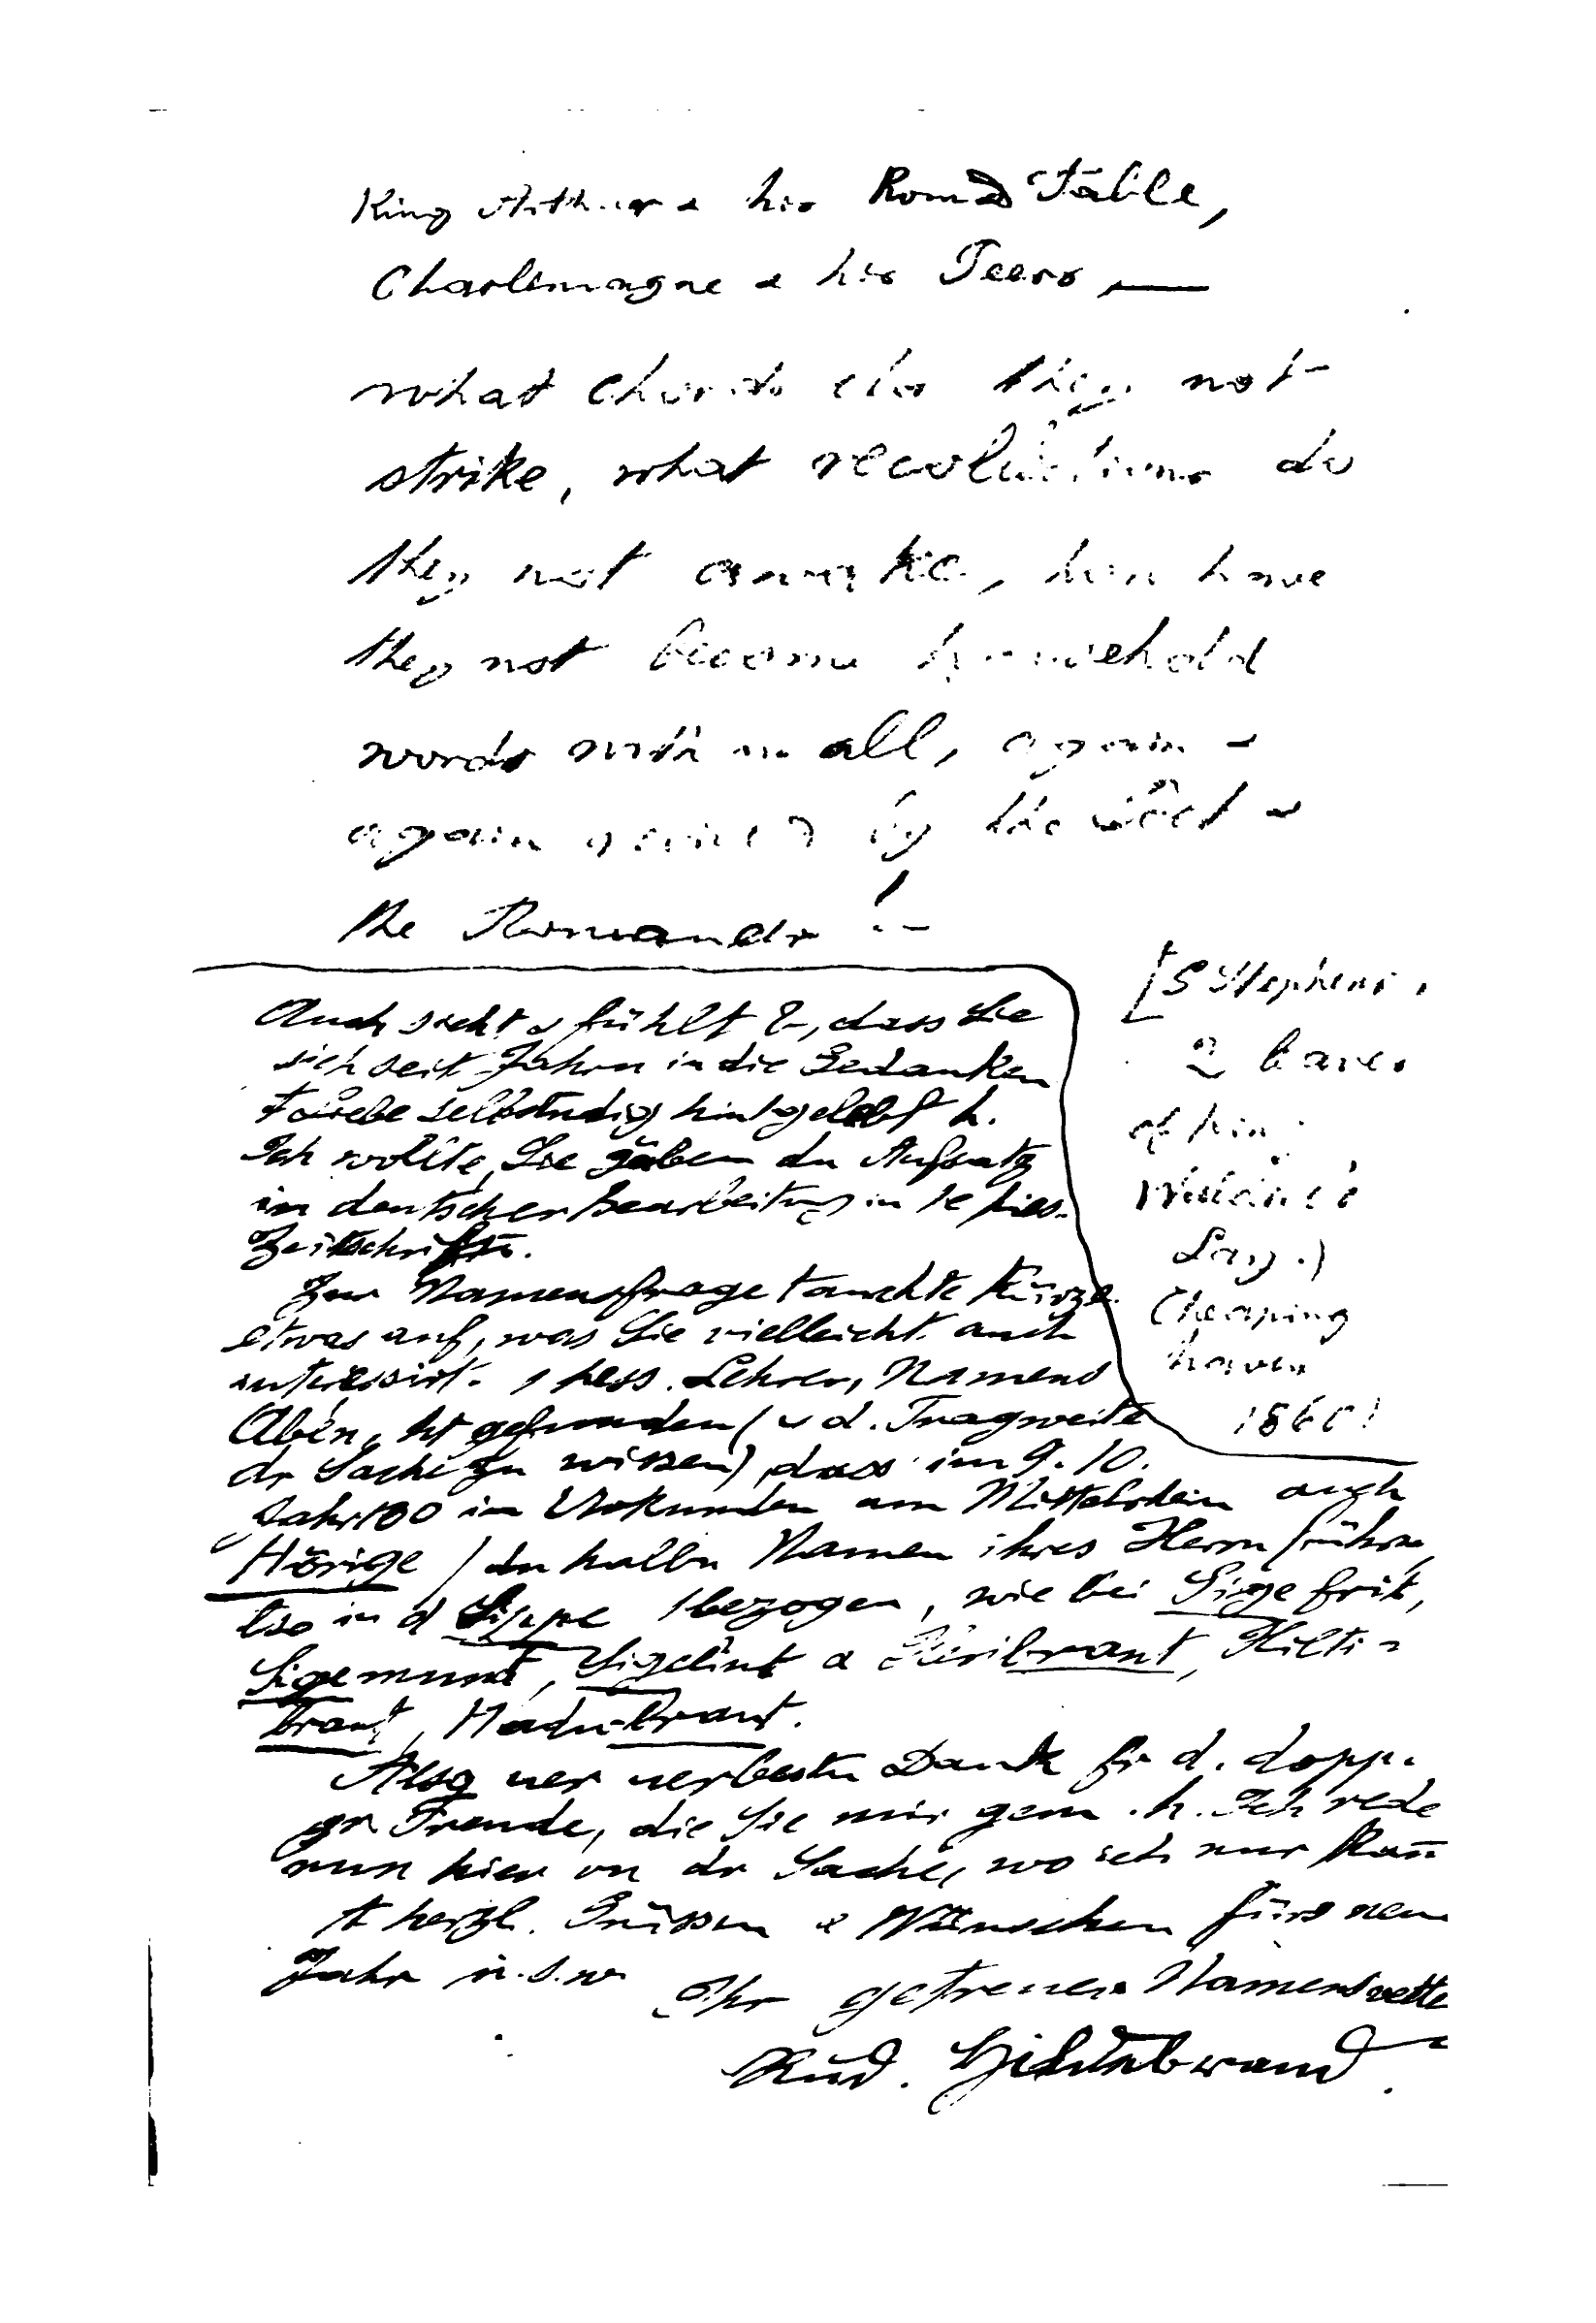 King Arthur & his Round Table,
Charlemagne & his Peers, —
what chords do they not
strike, what revolutions do
they not awake, how have
they not become household
words with us all, again &
again by the &
the Romancer! –
[S Stephens,
2 leaves
of King
Waldere's
Lay.]
Cheaping
haven
1860!
Auch sieht u fühlt, dass Sie
sich seit Jahren in die Gedanken
selbständig h.
Ich wollte, Sie gäben den Aufsatz
in deutscher Bearbeitung in
Zeitschrift.
Zur Namensfrage tauchte kürzl.
etwas auf, was Sie vielleicht auch
interessirt. 1 hess. Lehrer, Namens
ht gefunden ( d. Tragweite
dr Sache zu wissen), dass im 9. 10.
Jahr100 in Urkunden am Mittelrhein auch
Hörige den halbn Namen ihres Herrn führn,
in d Sippe bezogen, wie bei Sigefrit,
Sigemunt, Sigelint & Heribrant, Hilti-
brant, Hadubrant.
Also verbestn Dank fr d. dopp.
gr Freude, die Sie mir gem. h. Ich rede
nun hier vn dr Sache, wo ich nur kan̄
herzl. Grüssen & Wünschen fürs neue
Jahr u.s.w. Ihr getreuer Namensvette
Rud. Hildebrand.